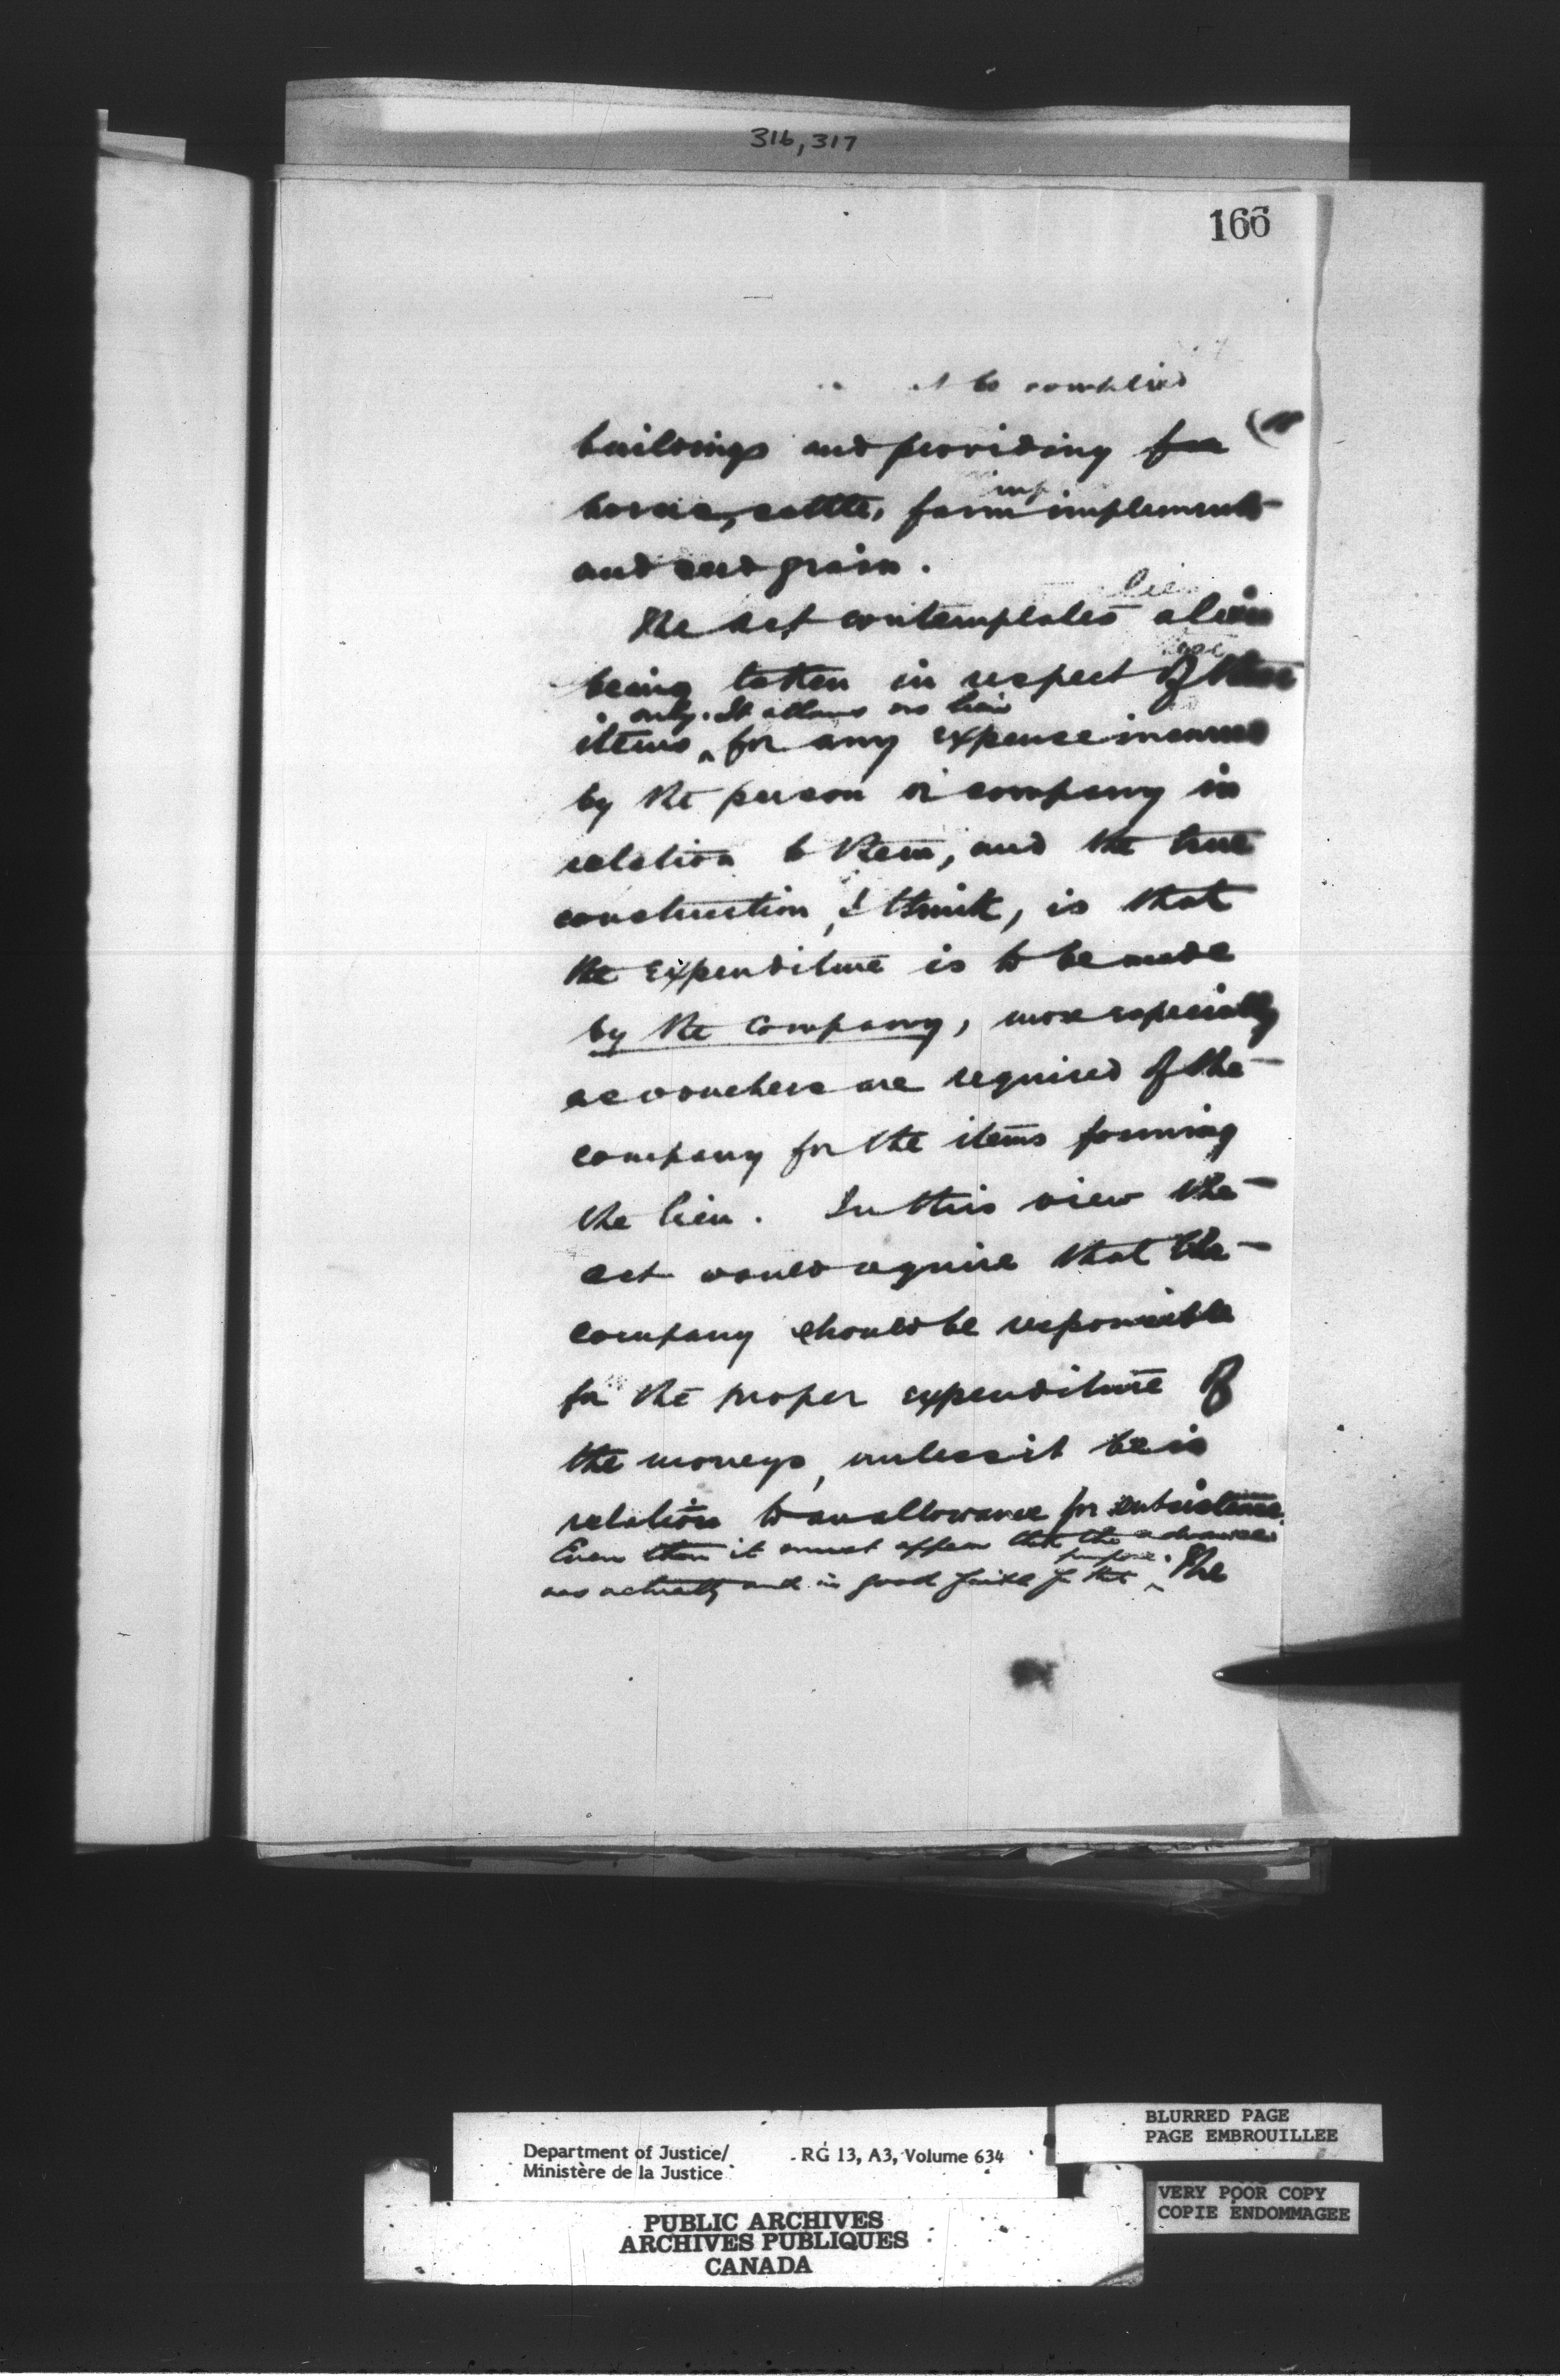 316, 317
166
to be complied
buildings and providing for
horses, cattle, farm implements
and seed grain.
lien
The Act contemplates a lien
being taken in respect of these
only. It allows no lien
items ‸ for any expense incurred
by the person or company in
relation to them, and the true
construction, I think, is that
the expenditure is to be made
by the Company, more especially
as vouchers are required of the
company for the items forming
the lien. In this view the
act would require that the
company should be responsible
for the proper expenditure of
the moneys, unless it be in
relation to an allowance for subsistence.
Even then it must appear that the advance
purpose.
was actually and in good faith for that ‸ The
Department of Justice/ RG 13, A3, Volume 634
Ministère de la Justice
PUBLIC ARCHIVES
ARCHIVES PUBLIQUES
CANADA
BLURRED PAGE
PAGE EMBROUILLEE
VERY POOR COPY
COPIE ENDOMMAGEE